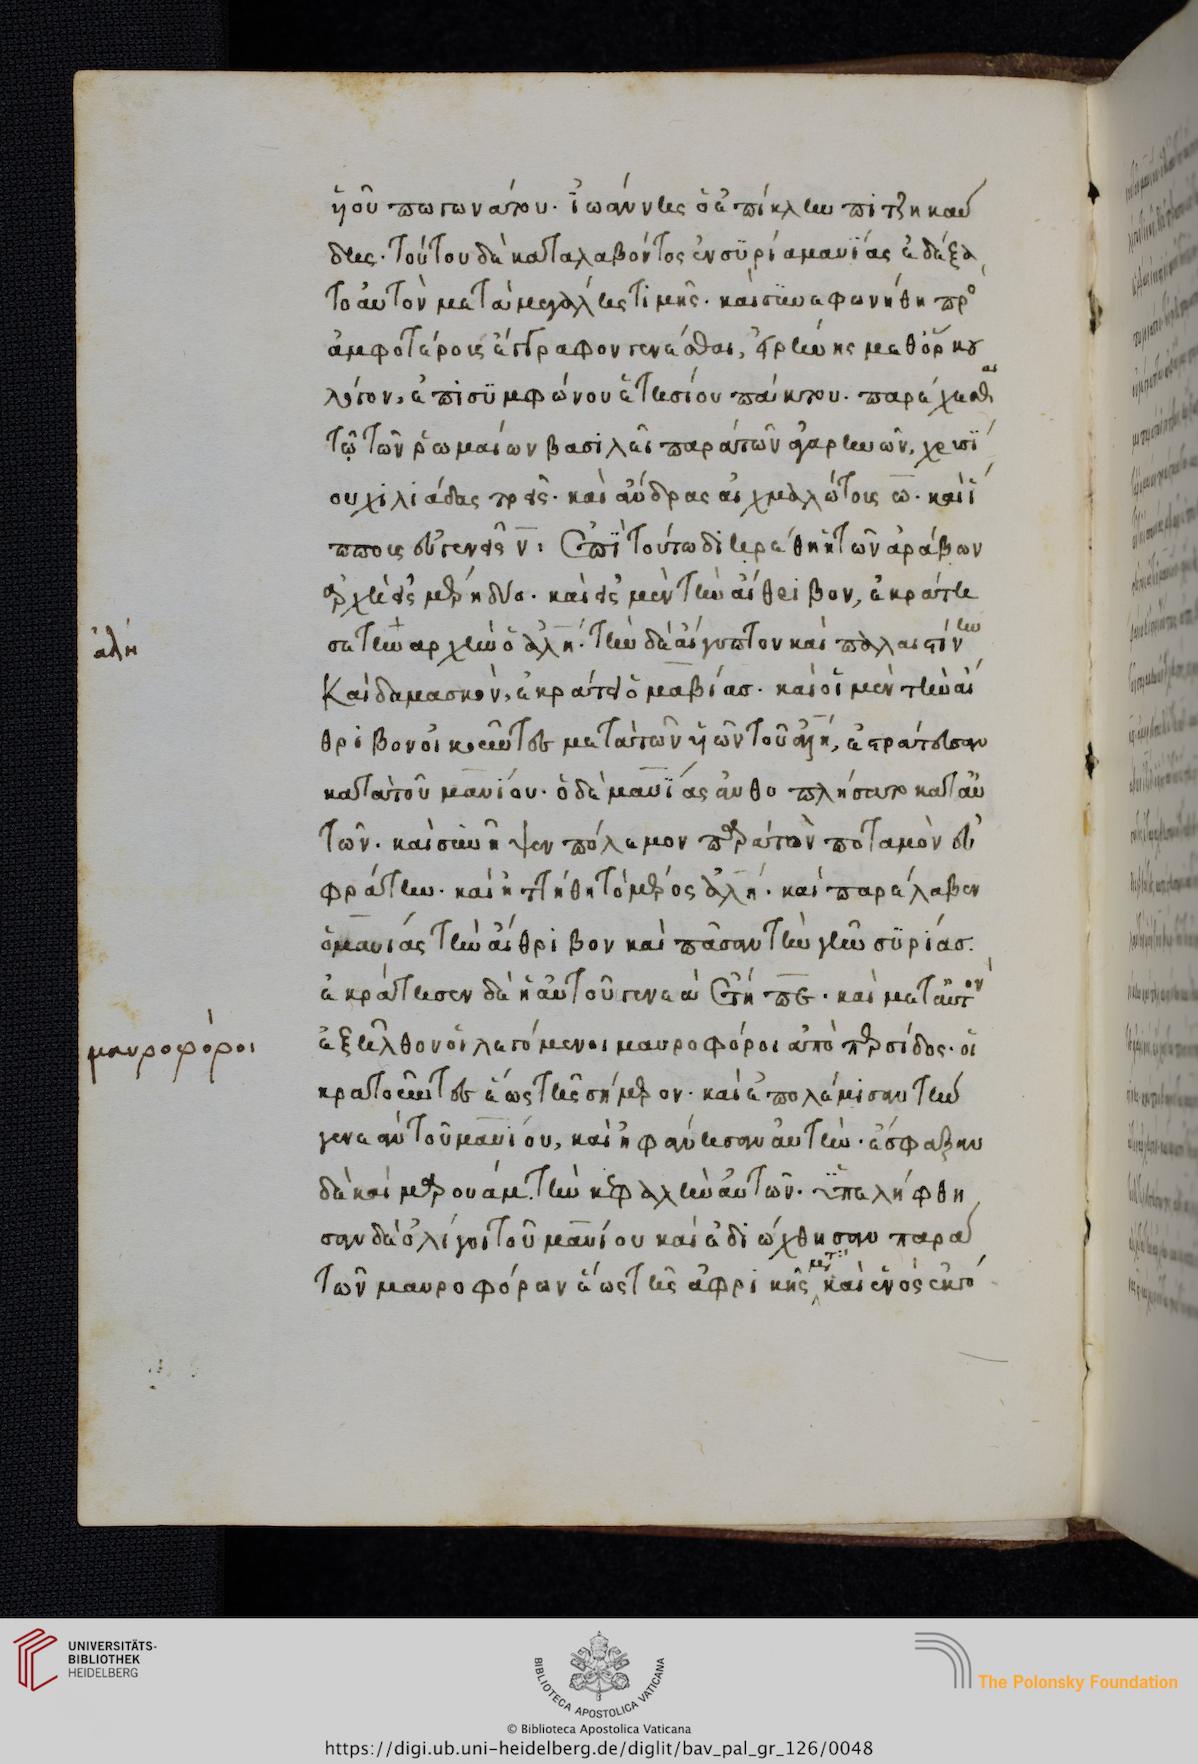 ὑοῦ πωγωνάτου. ἰωάννης ὁ ἐπίκλην πιτζηκαύ
δης. τούτου δὲ καταλαβόντος ἐν συρία μαυΐας ἐδέξα
το αὐτὸν μετὰ μεγάλης τιμῆς. καὶ συνεφωνήθη πρὸ
ἀμφοτέροις ἔγγραφον γενέσθαι, εἰρήνης μεθ' ὅρκου
λόγον, ἐπὶ συμφώνου ἐτησίου πάκτου. παρέχεσθαι
τῷ τῶν ῥωμαίων βασιλεῖ παρὰ τῶν ἀγαρηνῶν, χρυσί
ου χιλιάδας τρεῖς. καὶ ἄνδρας αἰχμαλώτους ω. καὶ ἵ
ππους εὐγενεῖς ν: Ἐπὶ τούτω διηρέθη ἡ τῶν ἀράβων
ἀρχὴ εἰς μέρη δύο. καὶ εἰς μὲν τὴν αἴθριβον, ἐκράτη
σε τὴν ἀρχὴν ὁ ἀλή. τὴν δὲ αἴγυπτον καὶ παλαιστίνην
ἀλή
Καὶ δαμασκὸν, ἐκράτει ὁ μαβίας. καὶ οἱ μὲν τὴν αἴ
θριβον οἰκοῦντες μετὰ τῶν ὑῶν τοῦ ἀλή, ἐστράτευσαν
κατὰ τοῦ μαυίου. ὁ δὲ μαυΐας ἀνθοπλήσατο κατ' αὐ
τῶν. καὶ συνῆψεν πόλεμον περὶ τὸν ποταμὸν εὐ
φράτην. καὶ ἡττήθη τὸ μέρος ἀλή. καὶ παρέλαβεν
ὁ μαυίας τὴν αἴθριβον καὶ πᾶσαν τὴν γῆν συρίας.
ἐκράτησεν δὲ ἡ αὐτοῦ γενεὰ ἔτη πε. καὶ μετ' αὐτὸν
ἐξῆλθον οἱ λεγόμενοι μαυροφόροι ἀπὸ περσίδος. οἱ
μαυροφόροι
κρατοῦντες ἕως τῆς σήμερον. καὶ ἐπολέμισαν τὴν
γενεὰν τοῦ μαυίου, καὶ ἠφάνησαν αὐτὴν. ἔσφαξαν
δὲ καὶ μερουάμ. τὴν κεφαλὴν αὐτῶν. ὑπελήφθη
σαν δὲ ὀλίγοι τοῦ μαυίου καὶ ἐδιώχθησαν παρὰ
τῶν μαυροφόρων ἕως τῆς ἀφρικῆς μετὰ καὶ ἑνὸς ἐκγό
UNIVERSITÄTS-
BIBLIOTHEK
HEIDELBERG
BIBLIOTECA APOSTOLICA VATICANA
The Polonsky Foundation
© Biblioteca Apostolica Vaticana
https://digi.ub.uni-heidelberg.de/diglit/bav_pal_gr_126/0048